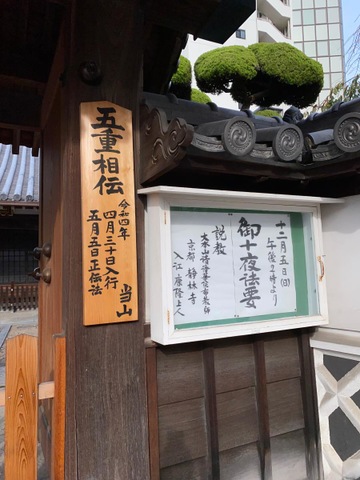 五重相伝
令和四年
四月三十日入行
五月五日正伝法
当山
十二月五日(日)
午後2時より
御十夜法要
説教
本山特派布教師
京都 静妹寺
入江康隆上人